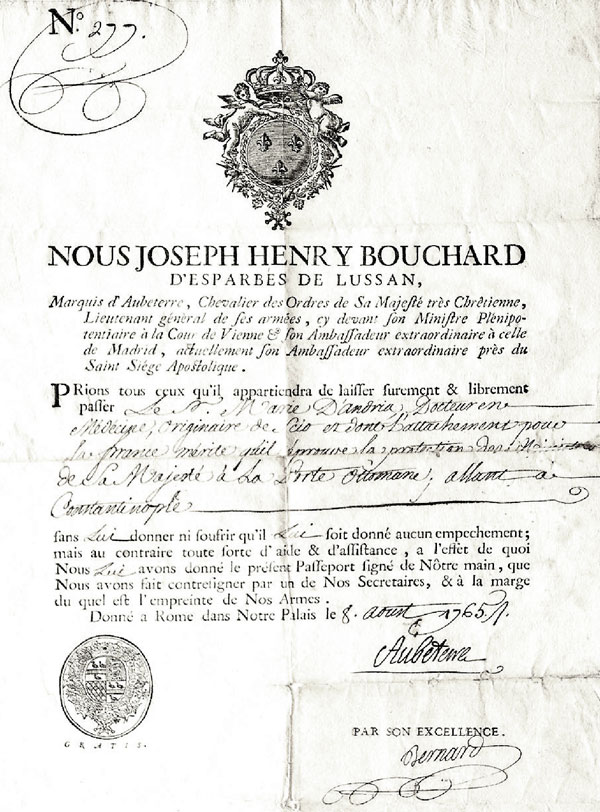 No. 277.
NOUS JOSEPH HENRY BOUCHARD
D'ESPARBES DE LUSSAN,
Marquis d'Aubeterre, Chevalier des Ordres de Sa Majesté très Chrêtienne,
Lieutenant général de ses armées, cy devant son Ministre Plénipo-
tentiaire à la Cour de Vienne & son Ambassadeur extraordinaire à celle
de Madrid, actuellement son Ambassadeur extraordinaire près du
Saint Siège Apostolique.
PRions tous ceux qu'il appartiendra de laisser surement & librement
passer Le Sr. Marie D'andria, Docteur en
Médecine, originaire de Scio et dont l'attachement pour
la france mérite qu'il éprouve la protection des Ministres
de Sa Majesté à La Porte Ottomane, allant à
Constantinople
sans Lui donner ni soufrir qu'il Lui soit donné aucun empechement;
mais au contraire toute sorte d'aide & d'assistance, a l'effèt de quoi
Nous Lui avons donné le présent Passeport signé de Nôtre main, que
Nous avons fait contresigner par un de Nos Secretaires, & à la marge
du quel est l'empreinte de Nos Armes.
Donné a Rome dans Notre Palais le 8. aoust 1765
Aubeterre
GRATIS.
PAR SON EXCELLENCE.
Bernard